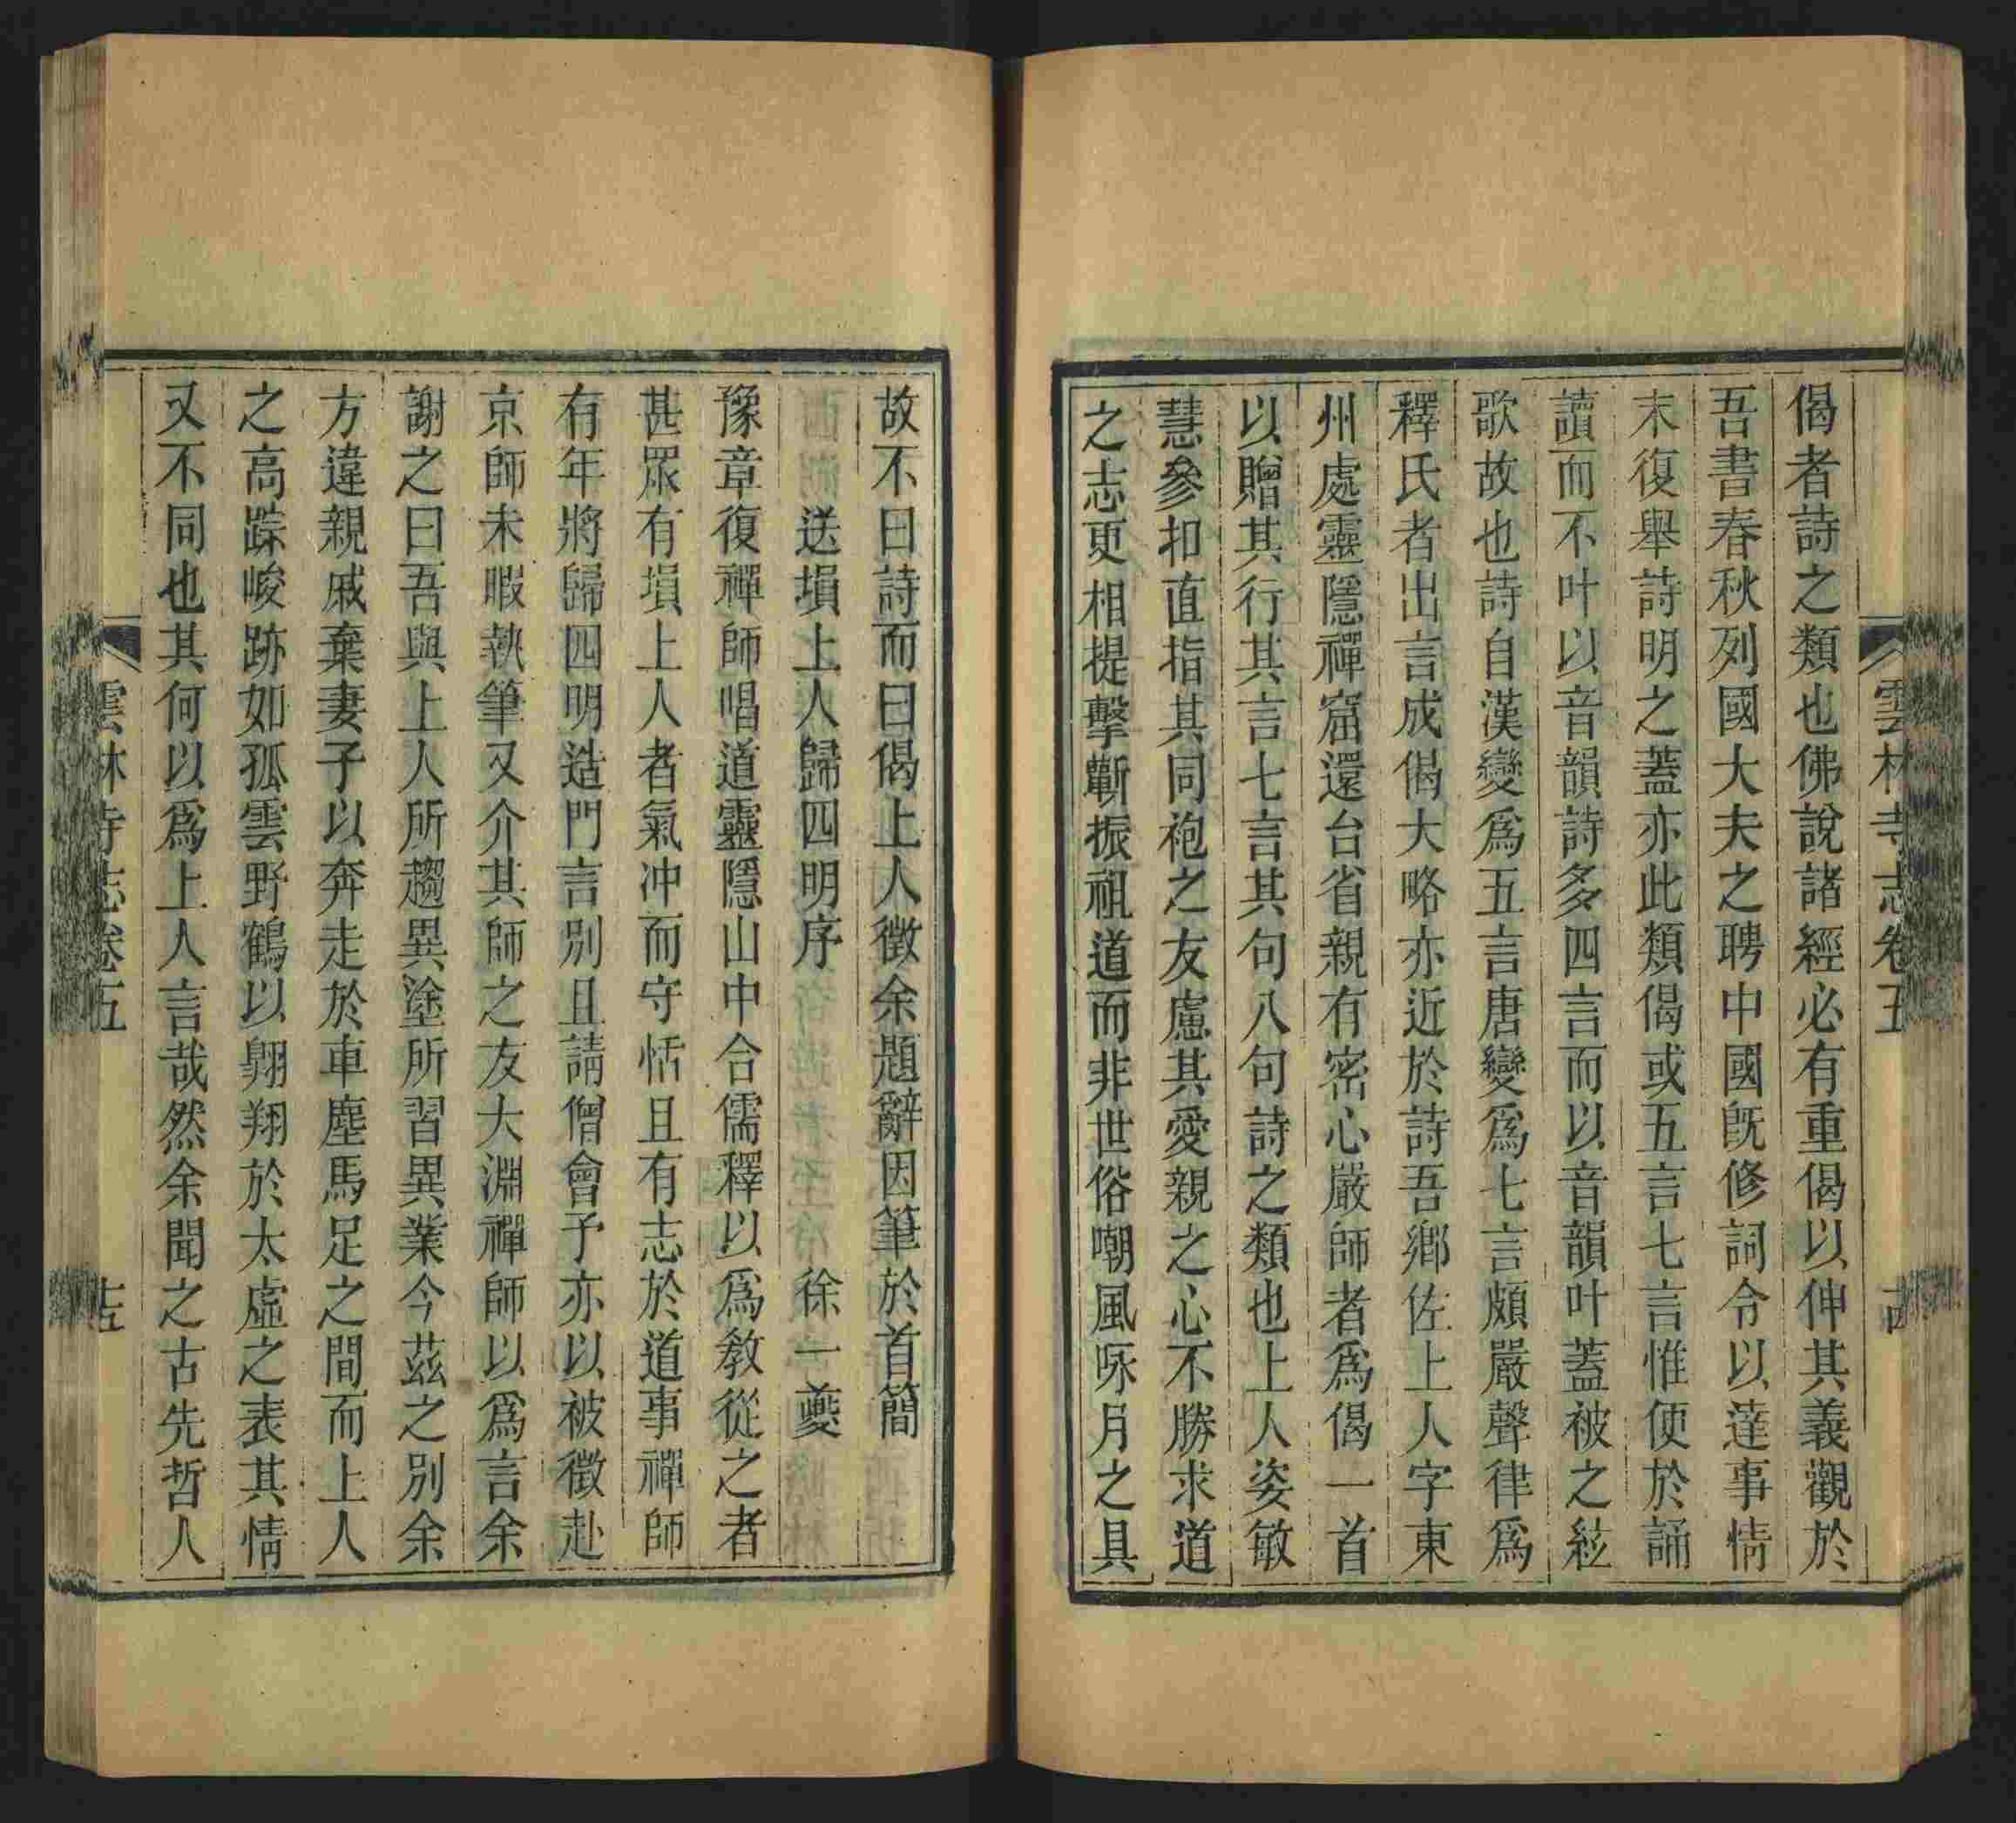 雲林寺志卷五
偈者詩之類也佛說諸經必有重偈以伸其義觀於
吾書春秋列國大夫之聘中國旣修詞令以達事情
末復舉詩明之蓋亦此類偈或五言七言惟便於誦
讀而不叶以音韻詩多四言而以音韻叶蓋被之絃
歌故也詩自漢變爲五言唐變爲七言頗嚴聲律爲
釋氏者出言成偈大略亦近於詩吾鄉佐上人字東
州處靈隱禪窟還台省親有密心嚴師者爲偈一首
以贈其行其言七言其句八句詩之類也上人姿敏
慧參扣直指其同袍之友慮其愛親之心不勝求道
之志更相提擊蘄振祖道而非世俗嘲風咏月之具
故不曰詩而曰偈上人徵余題辭因筆於首簡
送塤上人歸四明序 徐一夔
豫章復禪師唱道靈隱山中合儒釋以爲敎從之者
甚眾有塤上人者氣冲而守恬且有志於道事禪師
有年將歸四明造門言別且請僧會予亦以被徵赴
京師未暇執筆又介其師之友大淵禪師以爲言余
謝之曰吾與上人所趨異塗所習異業今茲之別余
方違親戚棄妻子以奔走於車塵馬足之間而上人
之高踪峻跡如孤雲野鶴以翺翔於太虛之表其情
又不同也其何以爲上人言哉然余聞之古先哲人
雲林寺志卷五